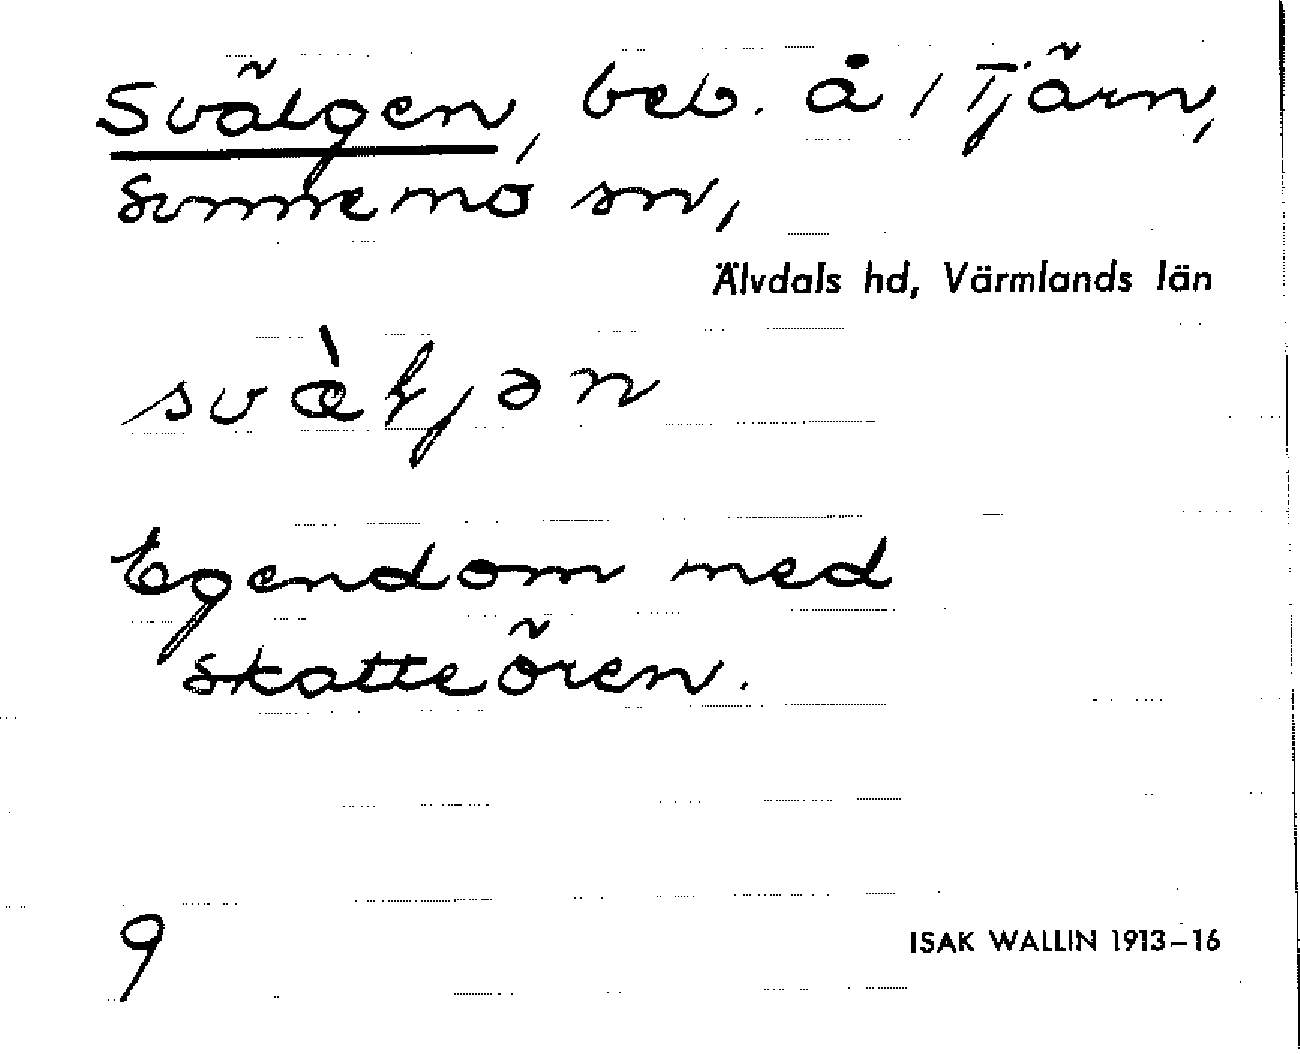 Svälgen, beb. å 1 Tjärn,
Sunnemo sn,
Älvdals hd, Värmlands län
svæ̀ljən
Egendom med
skatteören.
9
ISAK WALLIN 1913–16